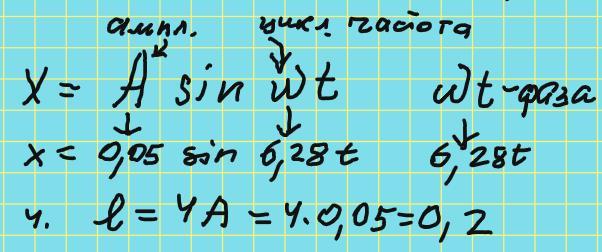 ампл. цикл. частота
X = A sin ωt ωt - фаза
x = 0,05 sin 6,28t 6,28t
4. l = 4A = 4·0,05=0,2